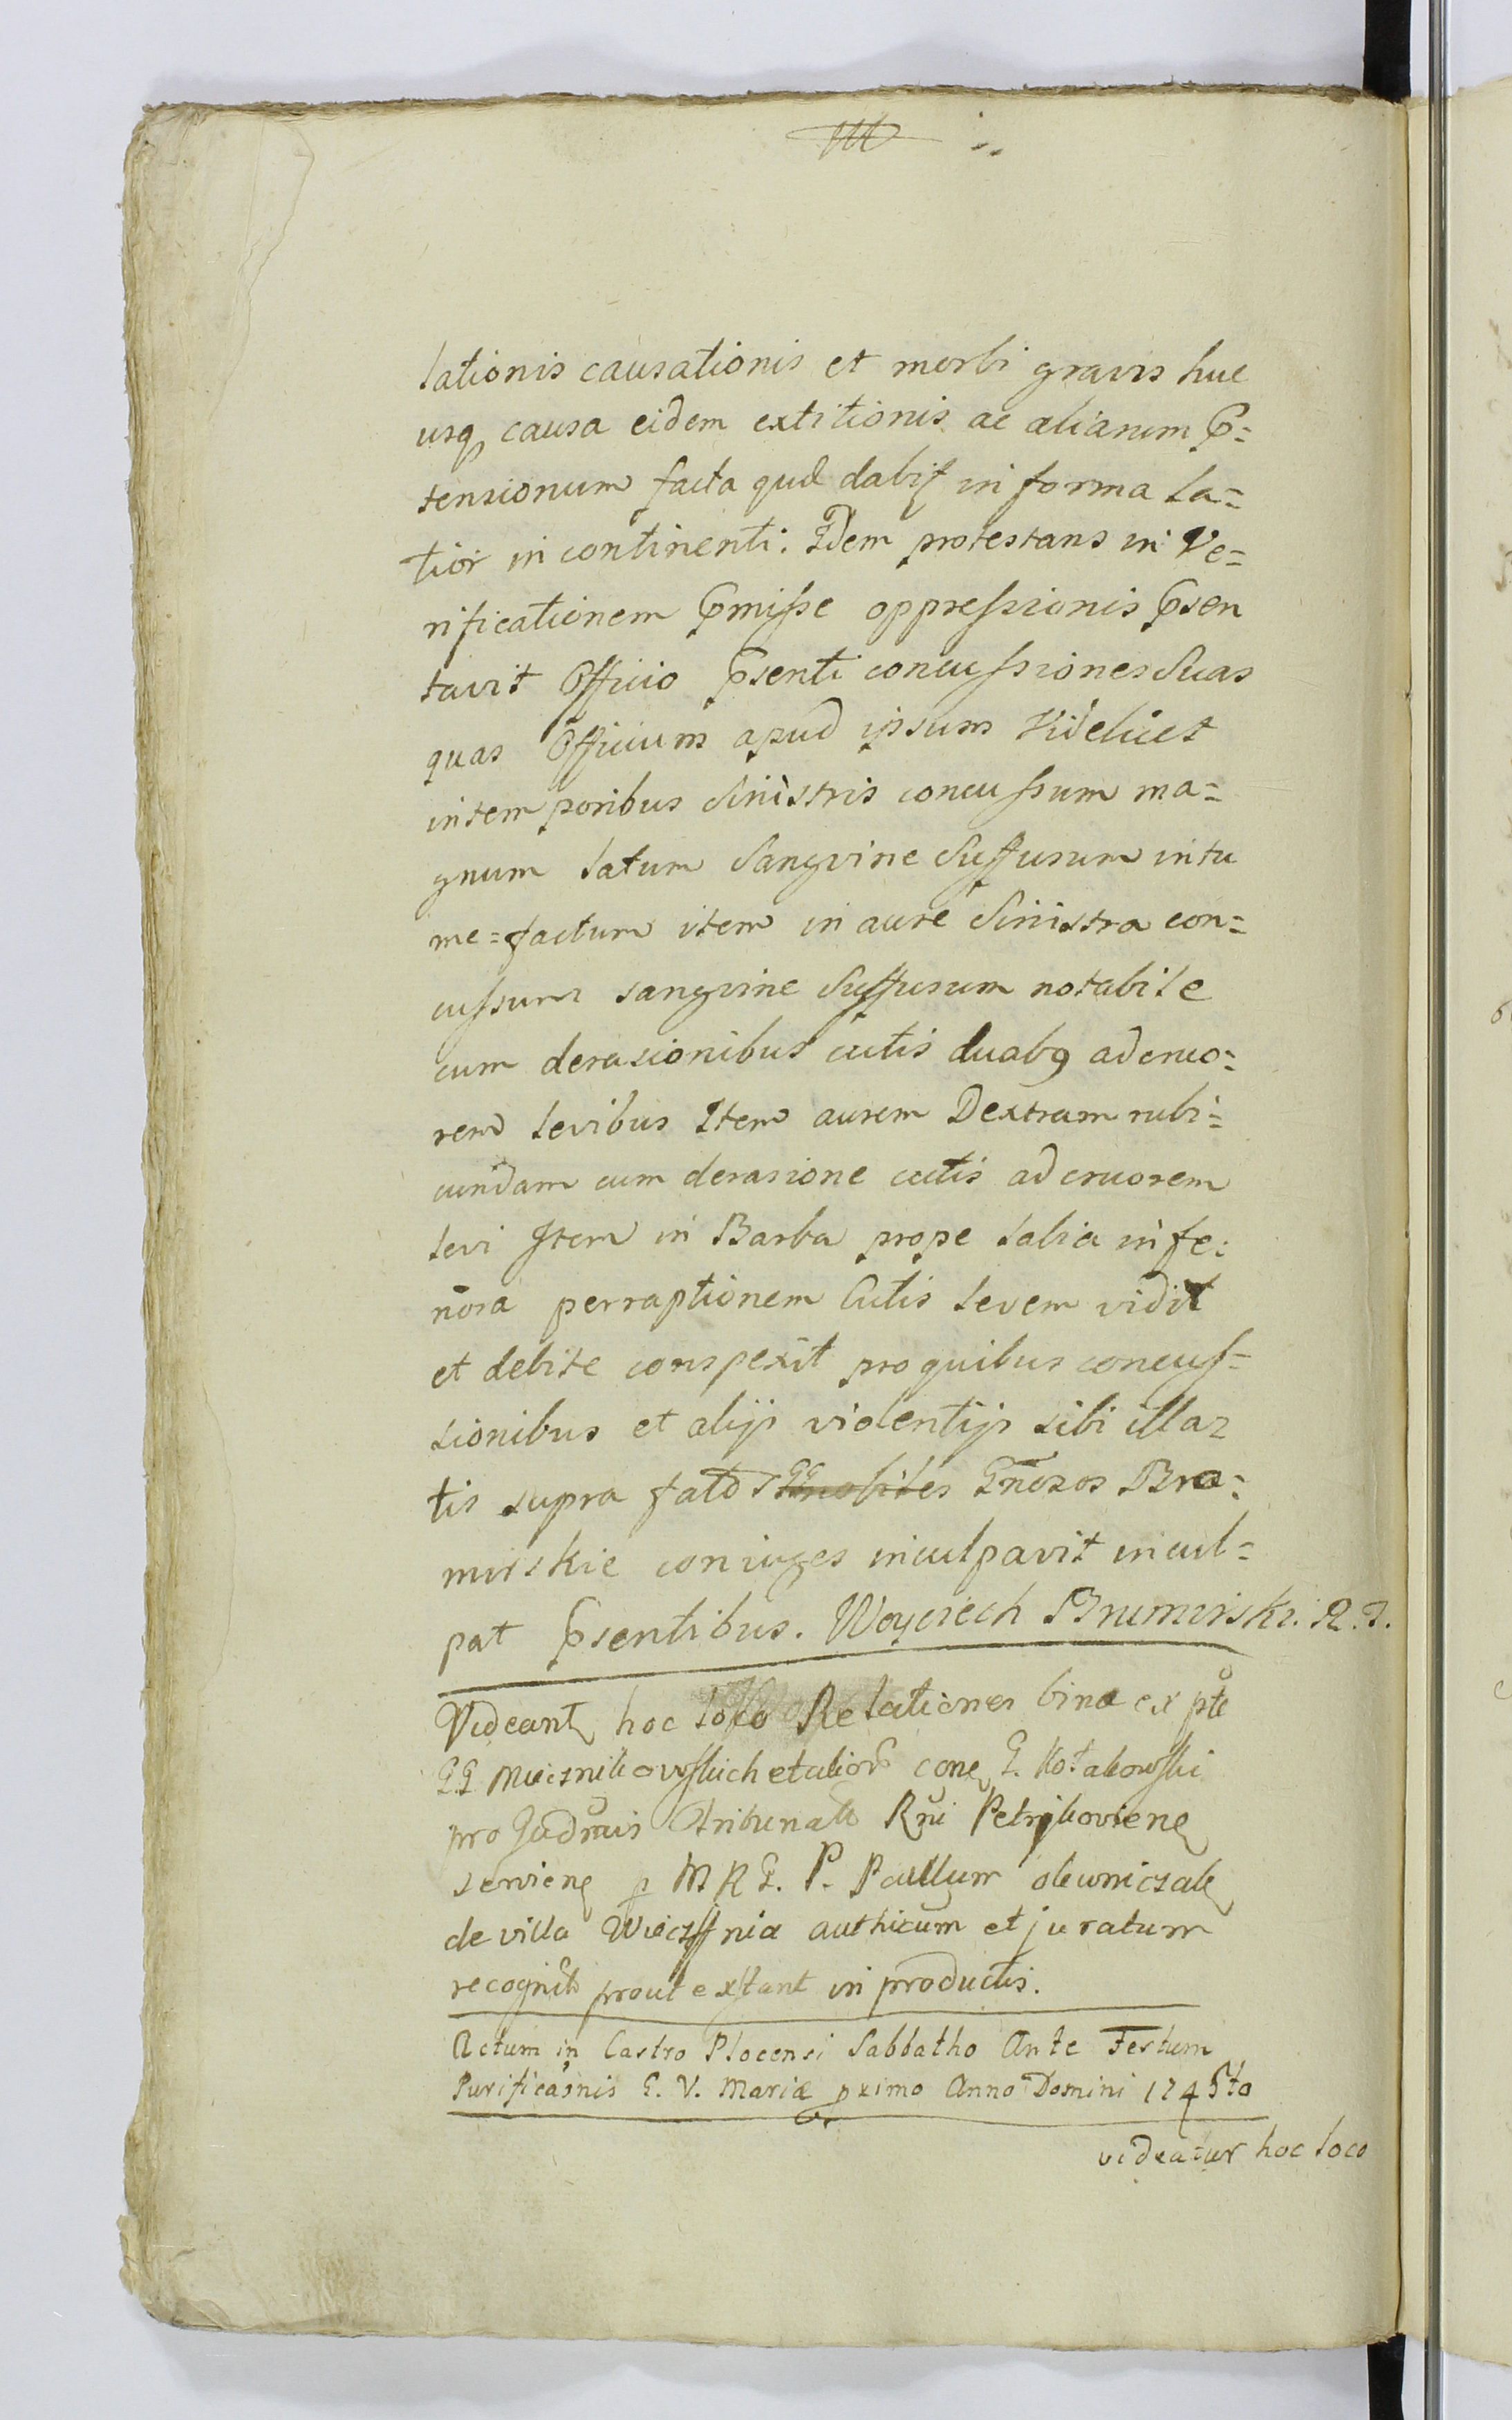 lationis causationis et morbi gravis huc
usq causa eidem extitionis ac aliarum P=
tensionum facta qud dabit in forma la=
tior in continenti. Idem protestans in Ve=
rificationem Pmisse oppressionis Psen
tavit Officio Psenti concussiones Suas
quas Officium apud ipsum Videlicet
in temporibus Sinistris concussum ma=
gnum latum Sangvine Suffusum intu
me=factum item in aure Sinistra con=
cussum sangvine Suffusum notabile
cum derasionibus cutis duabq ad cruo=
rem levibus Item aurem Dextram rubi=
cundam cum derasione cutis ad cruorem
levi Item in Barba prope labia infe=
riora perraptionem Cutis levem vidit
et debite conspexit pro quibus concus=
sionibus et alijs violentijs sibi illa
tis supra fatos Gnosos Bro=
mirskie coniuges inculpavit incul=
pat Psentibus. Woyciech Brumirski. R. T.
Videant hoc loco Relationes bina ex pte
GG Miecznikowskich et alior cone G. Kotakowski
pro Judiciis Tribunalis Rni Petrikoviene
serviene p M R G. P. Paullum olewniczak
de villa Wieczfnia authicum et juratum
recognit prout exstant in productis.
Actum in Castro Plocensi Sabbatho Ante Festum
Purificaonis B. V. Mariæ pximo Anno Domini 1745to
videatur hoc loco